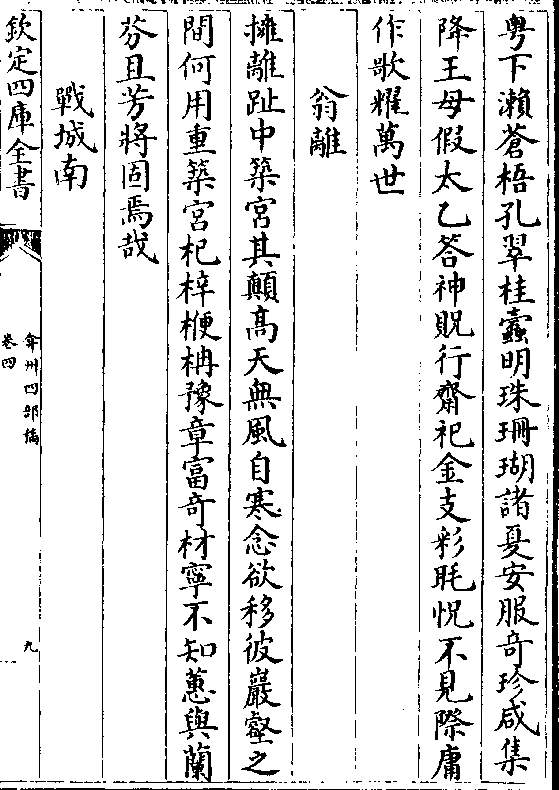 粤下瀨蒼梧孔翠桂蠹明珠珊瑚諸夏安服奇珍咸集
降王母假太乙答神貺行齋祀金支彩眊怳不見際庸
作歌耀萬世
翁離
擁離趾中築宮其顛高天無風自寒念欲移彼巖壑之
間何用重築宮杞梓楩柟豫章富奇材寧不知蕙與蘭
芬且芳將固焉哉
戰城南
欽定四庫全書
弇州四部稿
卷四
九